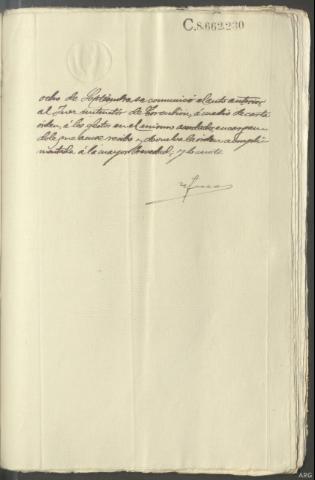 C.8.662.230
ocho de Septiembre se comunicó el auto anterior
al Juez instructor de Torrelavega, á medio de carta
orden, á los efectos en el mismo acordados, encargan-
dole que acuse recibo y devuelva la orden cumpli-
mentada á la mayor brevedad, y lo anoto
ARG